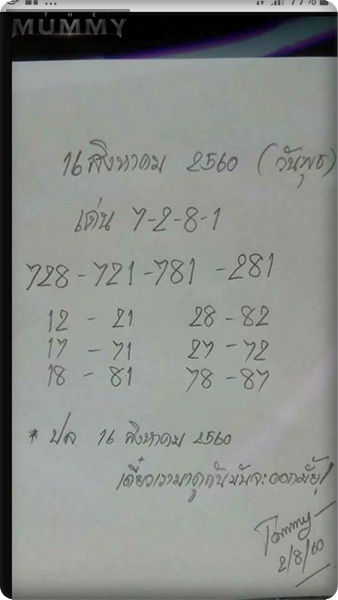 THE
MUMMY
77%
16 สิงหาคม 2560 (วันพุธ)
เด่น 7-2-8-1
728 - 721 - 781 - 281
12 - 21 28 - 82
17 - 71 27 - 72
18 - 81 78 - 87
* ปล 16 สิงหาคม 2560
เดี๋ยวเรามาดูกันมันจะออกมั้ย
Tommy
2/8/60